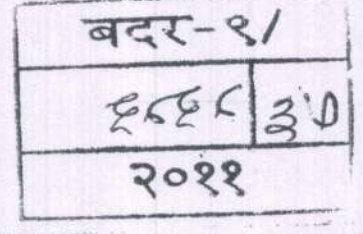 बदर-९/
६८६८
२०११